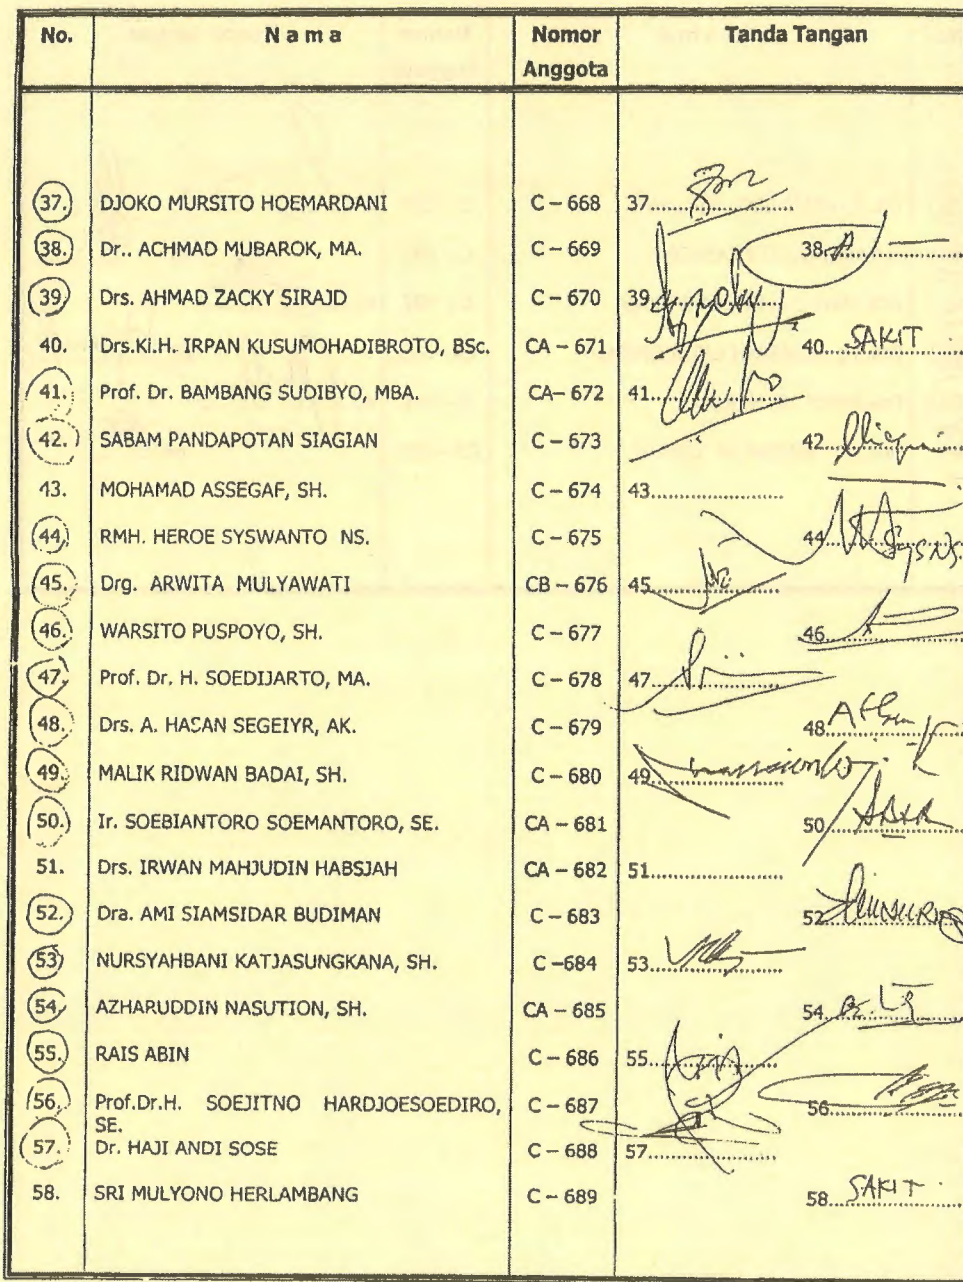 No. Nama Nomor Anggota Tanda Tangan
37. DJOKO MURSITO HOEMARDANI C – 668 37..................
38. Dr.. ACHMAD MUBAROK, MA. C – 669 38..................
39. Drs. AHMAD ZACKY SIRAJD C – 670 39..................
40. Drs.Ki.H. IRPAN KUSUMOHADIBROTO, BSc. CA – 671 40. SAKIT
41. Prof. Dr. BAMBANG SUDIBYO, MBA. CA– 672 41..................
42. SABAM PANDAPOTAN SIAGIAN C – 673 42..................
43. MOHAMAD ASSEGAF, SH. C – 674 43..................
44. RMH. HEROE SYSWANTO NS. C – 675 44..................
45. Drg. ARWITA MULYAWATI CB – 676 45..................
46. WARSITO PUSPOYO, SH. C – 677 46..................
47. Prof. Dr. H. SOEDIJARTO, MA. C – 678 47..................
48. Drs. A. HASAN SEGEIYR, AK. C – 679 48..................
49. MALIK RIDWAN BADAI, SH. C – 680 49..................
50. Ir. SOEBIANTORO SOEMANTORO, SE. CA – 681 50..................
51. Drs. IRWAN MAHJUDIN HABSJAH CA – 682 51..................
52. Dra. AMI SIAMSIDAR BUDIMAN C – 683 52..................
53. NURSYAHBANI KATJASUNGKANA, SH. C –684 53..................
54. AZHARUDDIN NASUTION, SH. CA – 685 54..................
55. RAIS ABIN C – 686 55..................
56. Prof.Dr.H. SOEJITNO HARDJOESOEDIRO, C – 687 56..................
SE.
57. Dr. HAJI ANDI SOSE C – 688 57..................
58. SRI MULYONO HERLAMBANG C – 689 58. SAKIT